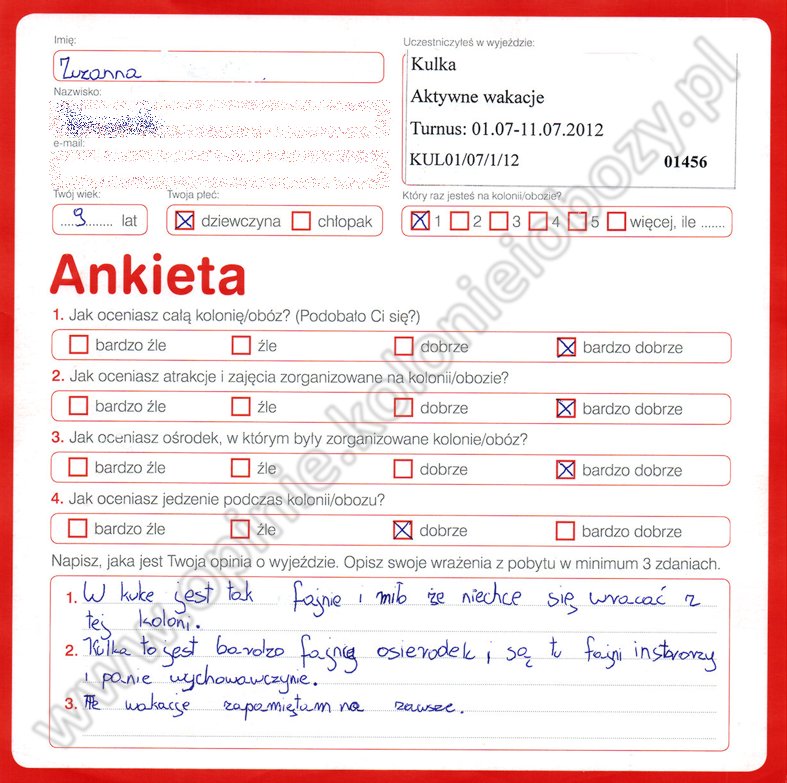 Imię:
Zuzanna
Nazwisko:
e-mail:
Twój wiek:
9 lat
Twoja płeć:
dziewczyna chłopak
Uczestniczyłeś w wyjeździe:
Kulka
Aktywne wakacje
Turnus: 01.07-11.07.2012
KUL01/07/1/12 01456
Który raz jesteś na kolonii/obozie?
1 2 3 4 5 więcej, ile .......
Ankieta
1. Jak oceniasz całą kolonię/obóz? (Podobało Ci się?)
bardzo źle źle dobrze bardzo dobrze
2. Jak oceniasz atrakcje i zajęcia zorganizowane na kolonii/obozie?
bardzo źle źle dobrze bardzo dobrze
3. Jak oceniasz ośrodek, w którym były zorganizowane kolonie/obóz?
bardzo źle źle dobrze bardzo dobrze
4. Jak oceniasz jedzenie podczas kolonii/obozu?
bardzo źle źle dobrze bardzo dobrze
Napisz, jaka jest Twoja opinia o wyjeździe. Opisz swoje wrażenia z pobytu w minimum 3 zdaniach.
1. W kulce jest tak fajnie i miło że niechce się wracać z
tej koloni.
2. Kulka to jest bardzo fajny osierodek i są tu fajni instrorzy
i panie wychowawczynie.
3. Te wakacje zapamiętam na zawsze.
www.opinie.kolonieiobozy.pl